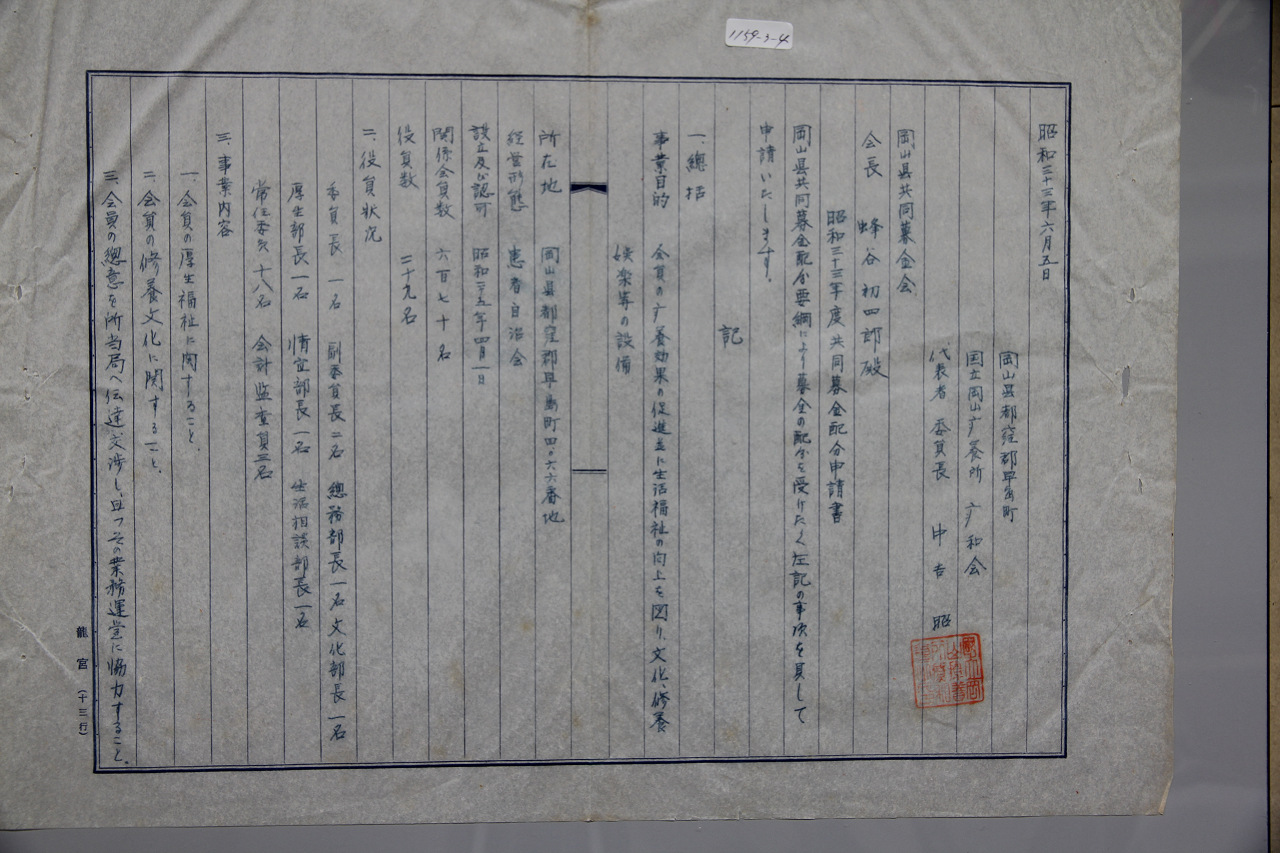 1159-3-4
昭和三十三年六月五日
岡山县都窪郡早島町
国立岡山疒養所 疒和会
代表者 委員長 中吉 昭
岡山県共同募金会
会長 蜂谷初四郎殿
昭和三十三年度共同募金配分申請書
岡山县共同募金配分要綱により募金の配分を受けたく左記の事項を具して
申請いたします。
記
一、總括
事業目的 会員の疒養効果の促進並に生活福祉の向上を図り、文化、修養
娯楽等の設備
所在地 岡山县都窪郡早島町四〇六六番地
経営形態 患者自治会
設立及び認可 昭和二十五年四月一日
関係会員数 六百七十名
役員数 二十九名
二、役員状況
委員長 一名 副委員長二名 總務部長一名 文化部長一名
厚生部長一名 情宣部長一名 生活相談部長一名
常任委員十八名 会計監査員三名
三、事業内容
一、会員の厚生福祉に関すること、
二、会員の修養文化に関すること、
三、会員の總意を所当局へ伝達、交渉し、且つその業務運営に協力すること、
龍宮(十三行)